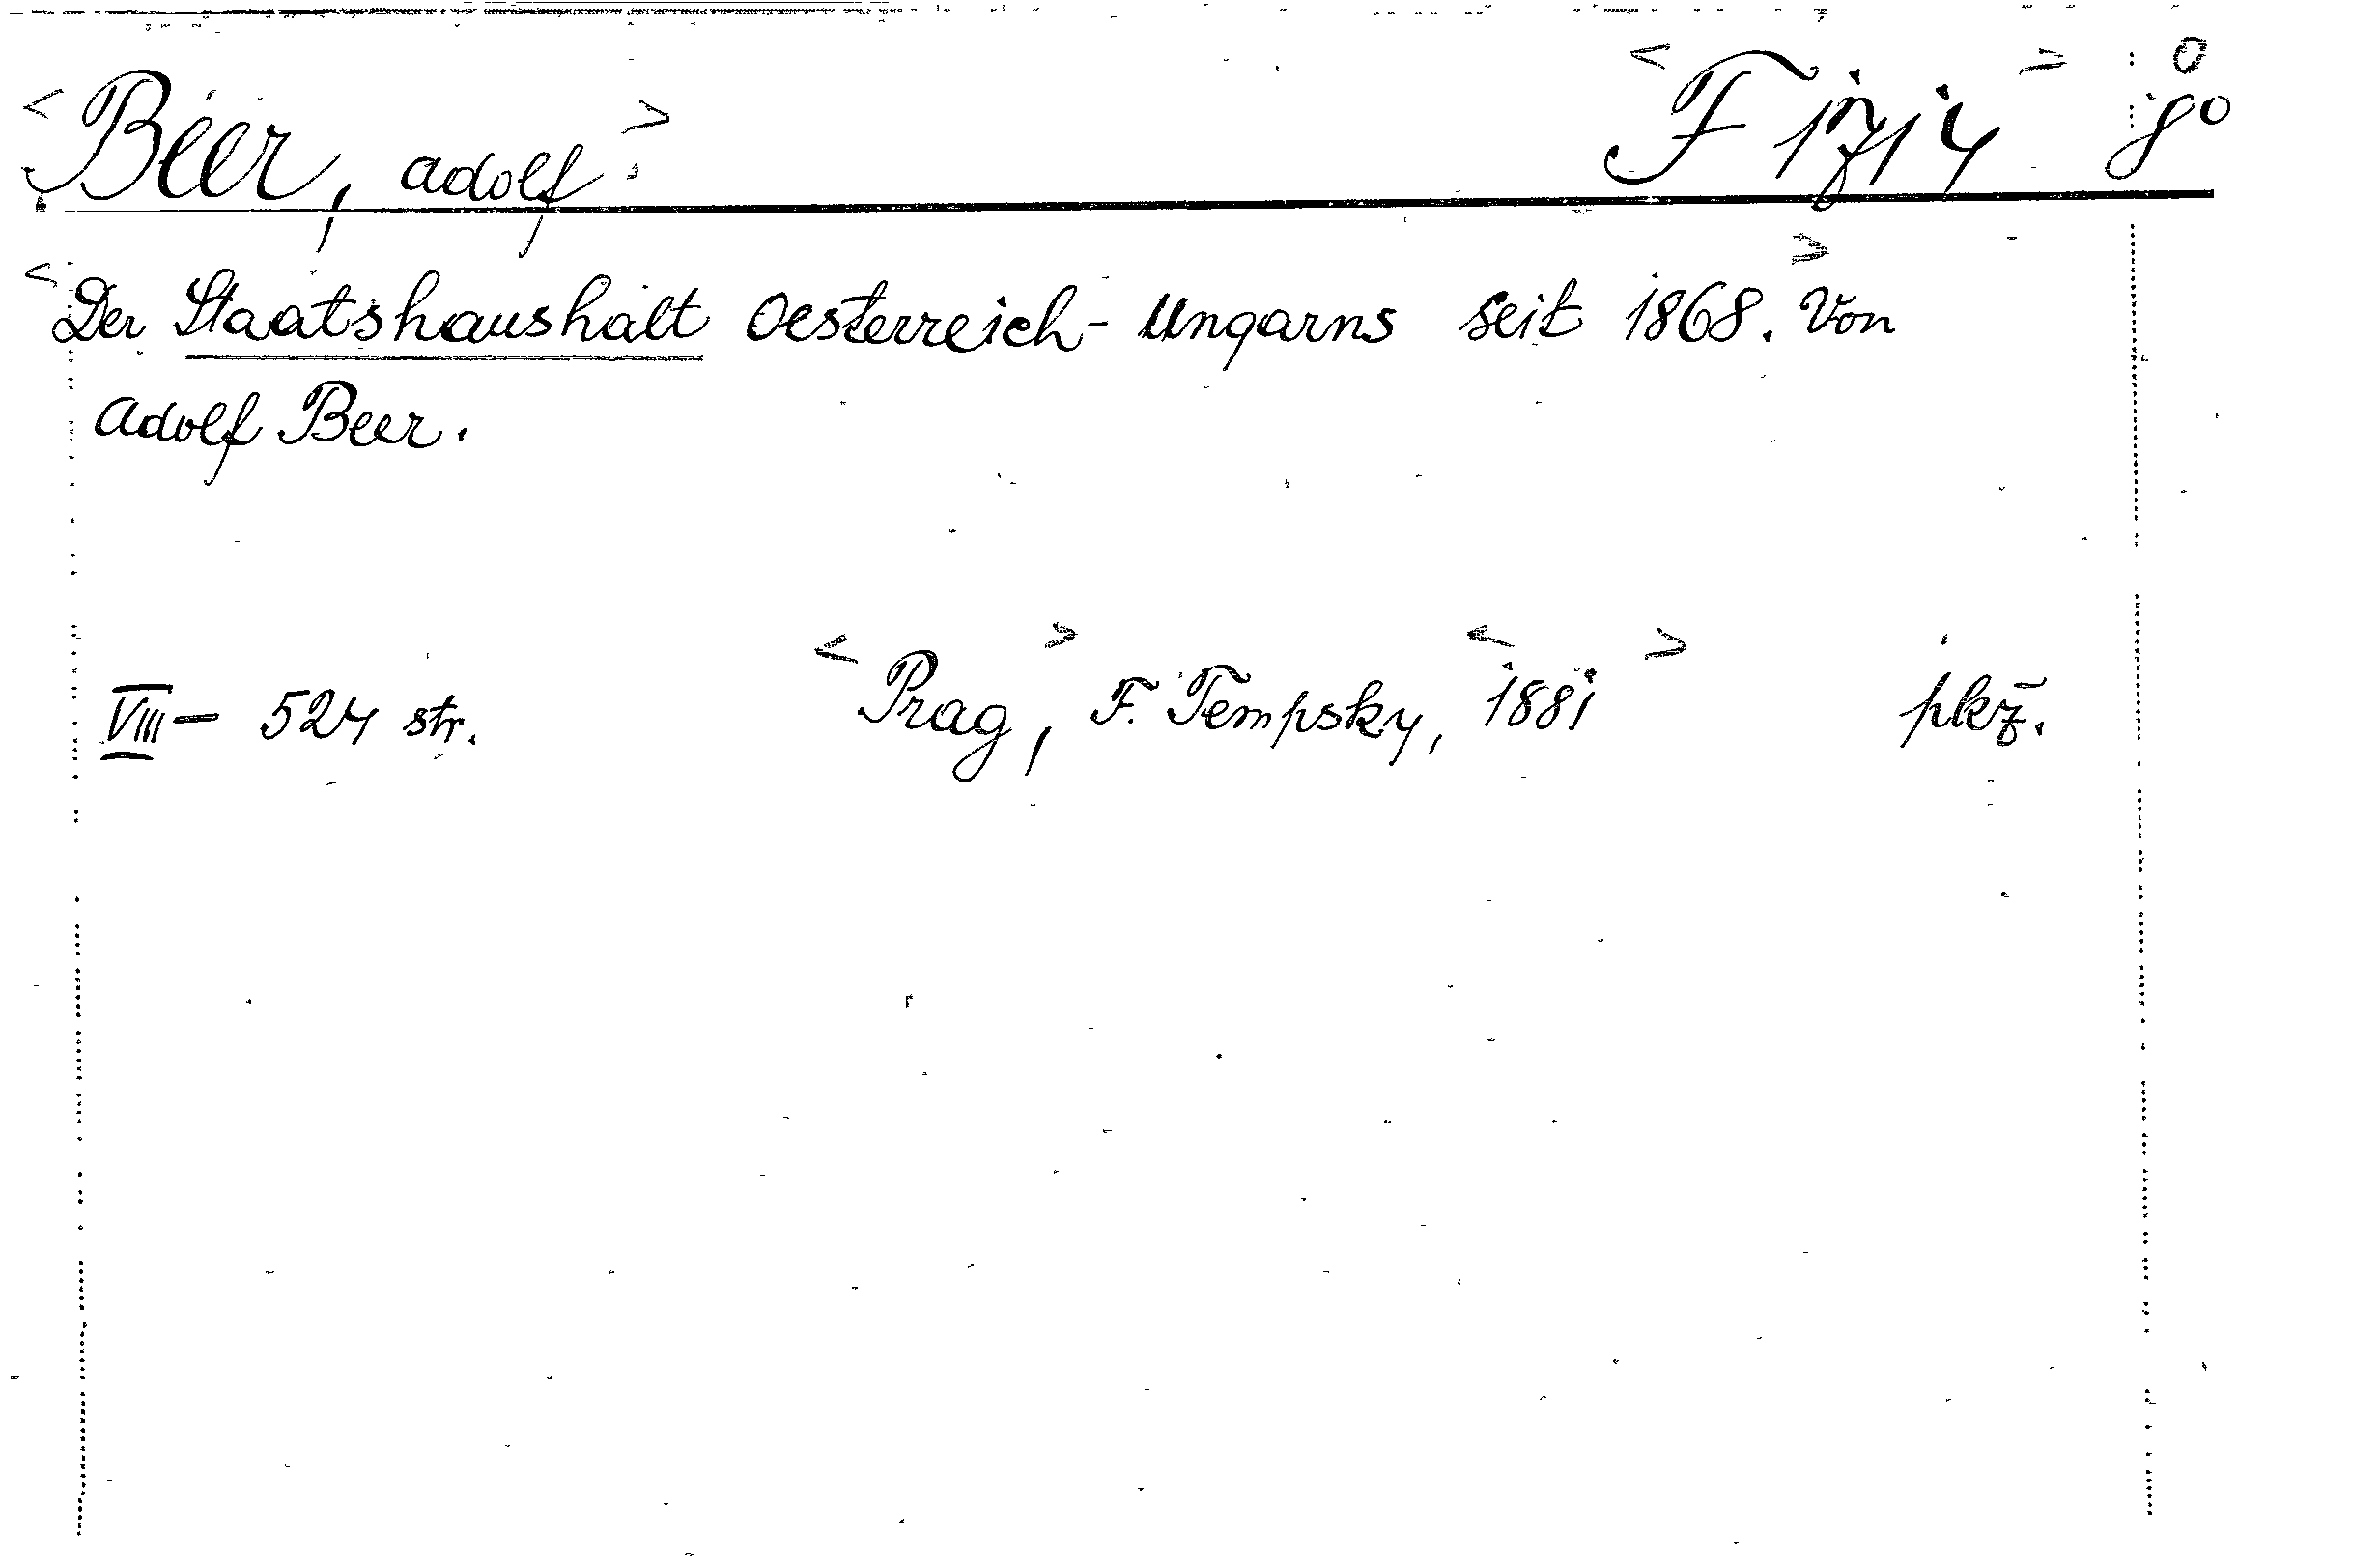 <Beer, Adolf> <F 1714> 8° 0
<Der Staatshaushalt Oesterreich-Ungarns seit 1868.> Von
Adolf Beer.
VIII — 524 str. <Prag>, F. Tempsky, <1881> pkž.